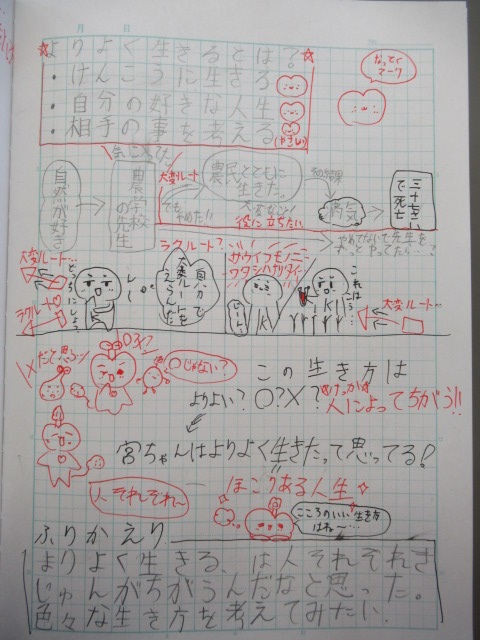 月 日
よりよく生きるとは?
・けんこうに生きる
・自分の好きな人生
・相手の事を考える
(やさしい)
なってく
マーク
自然が好き
農学校
の先生
大変ルート
でも
やめた!!
農民とともに
生きた。
役に立ちたい
病気
三十七さい
で死亡
ラクルート?
サウイフモノニ
ワタシハナリタイ
大変ルート…
大変ルート
ラクルート
どっちにしよう
自分で
大変ルートを
えらんだ
これはこう…
○×?
×だと思う!
○じゃない?
この生き方は
よりよい?○?×?
人によってちがう!!
宮ちゃんはよりよく生きたって思ってる!
人それぞれ〜
ほこりある人生
こころのいい生き方
はね〜…
ふりかえり
よりよく生きる、は人それぞれき
じゅんがちがうんだなと思った。
色々な生き方を考えてみたい。